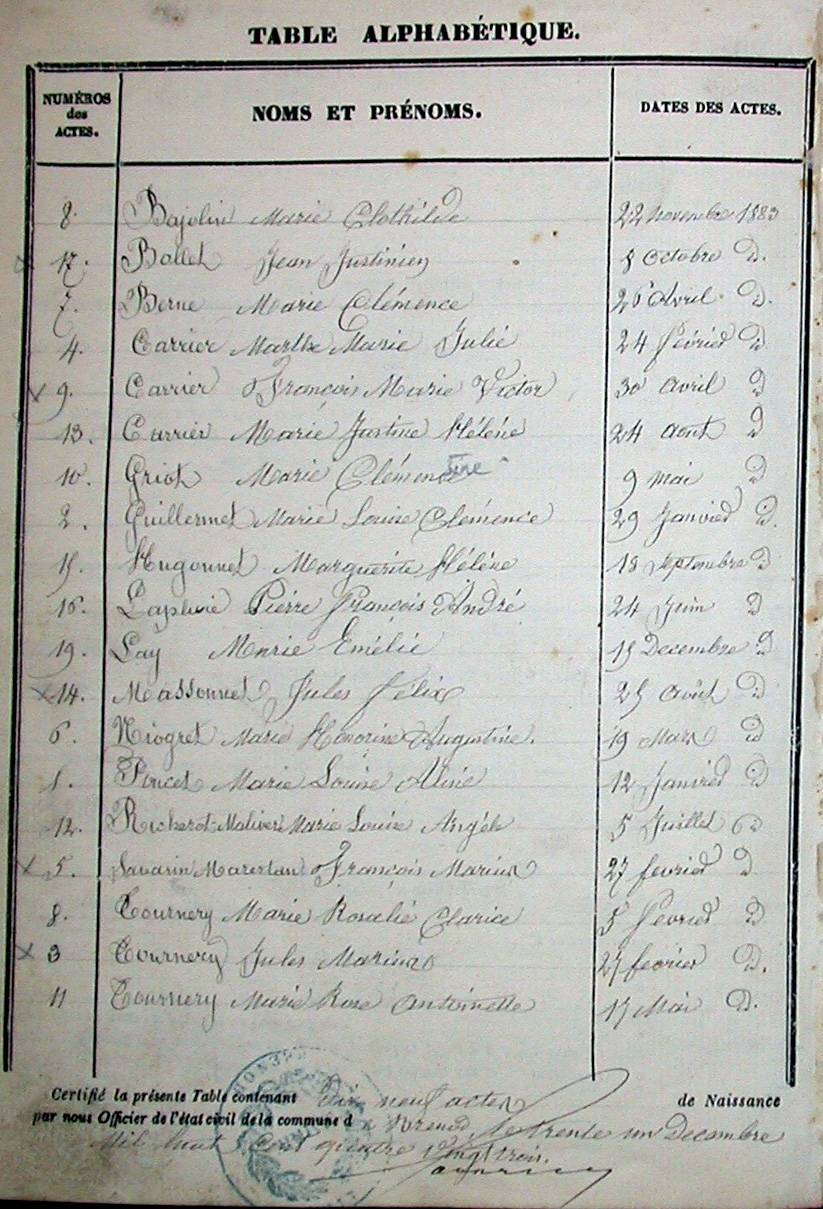 TABLE ALPHABÉTIQUE.
NUMÉROS des ACTES. NOMS ET PRÉNOMS. DATES DES ACTES.
8. Bajolin Marie Clothilde 22 novembre 1883
17. Ballet Jean Justinien 8 Octobre d.
7. Berne Marie Clémence 26 Avril d.
4. Carrier Marthe Marie Julie 24 fevrier d.
x 9. Carrier François Marie Victor 30 avril d
13. Carrier Marie Justine Hélène 24 Aout d
10. Griot Marie Clémence 9 mai d
2. Guillermet Marie Louise Clemence 29 Janvier d.
15. Hugonnet Marguerite Hélène 18 Septembre d
16. Pierre François André 24 Juin d
19. Lay Marie Emélie 15 Decembre d
x 14. Massonnet Jules Félix 25 Août d
6. Niogret Marie Honorine Augustine. 19 Mars d
1. Poncet Marie Louise Aline 12 Janvier d
12. Richerot-Maliver Marie Louise Angèle 5 Juillet d
x 5. Savarin Marestan François Marius 27 fevrier d
8. Tournery Marie Rosalie Clarice 5 fevrier d
x 3 Tournery Jules Marius 27 fevrier d.
11 Tournery Marie Rose Antoinette 17 Mai d.
Certifié la présente Table contenant Dix neuf actes de Naissance
par nous Officier de l'état civil de la commune d le trente un Decembre
Mil huit Cent quatre vingt trois.